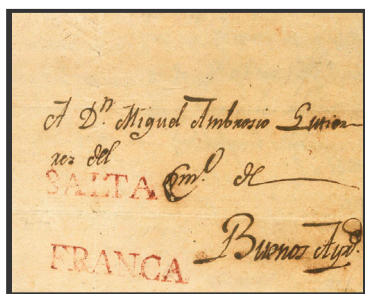 A Dⁿ. Miguel Ambrosio Gutier
rez del
SALTA Comº. de
Buenos Ayˢ.
FRANCA